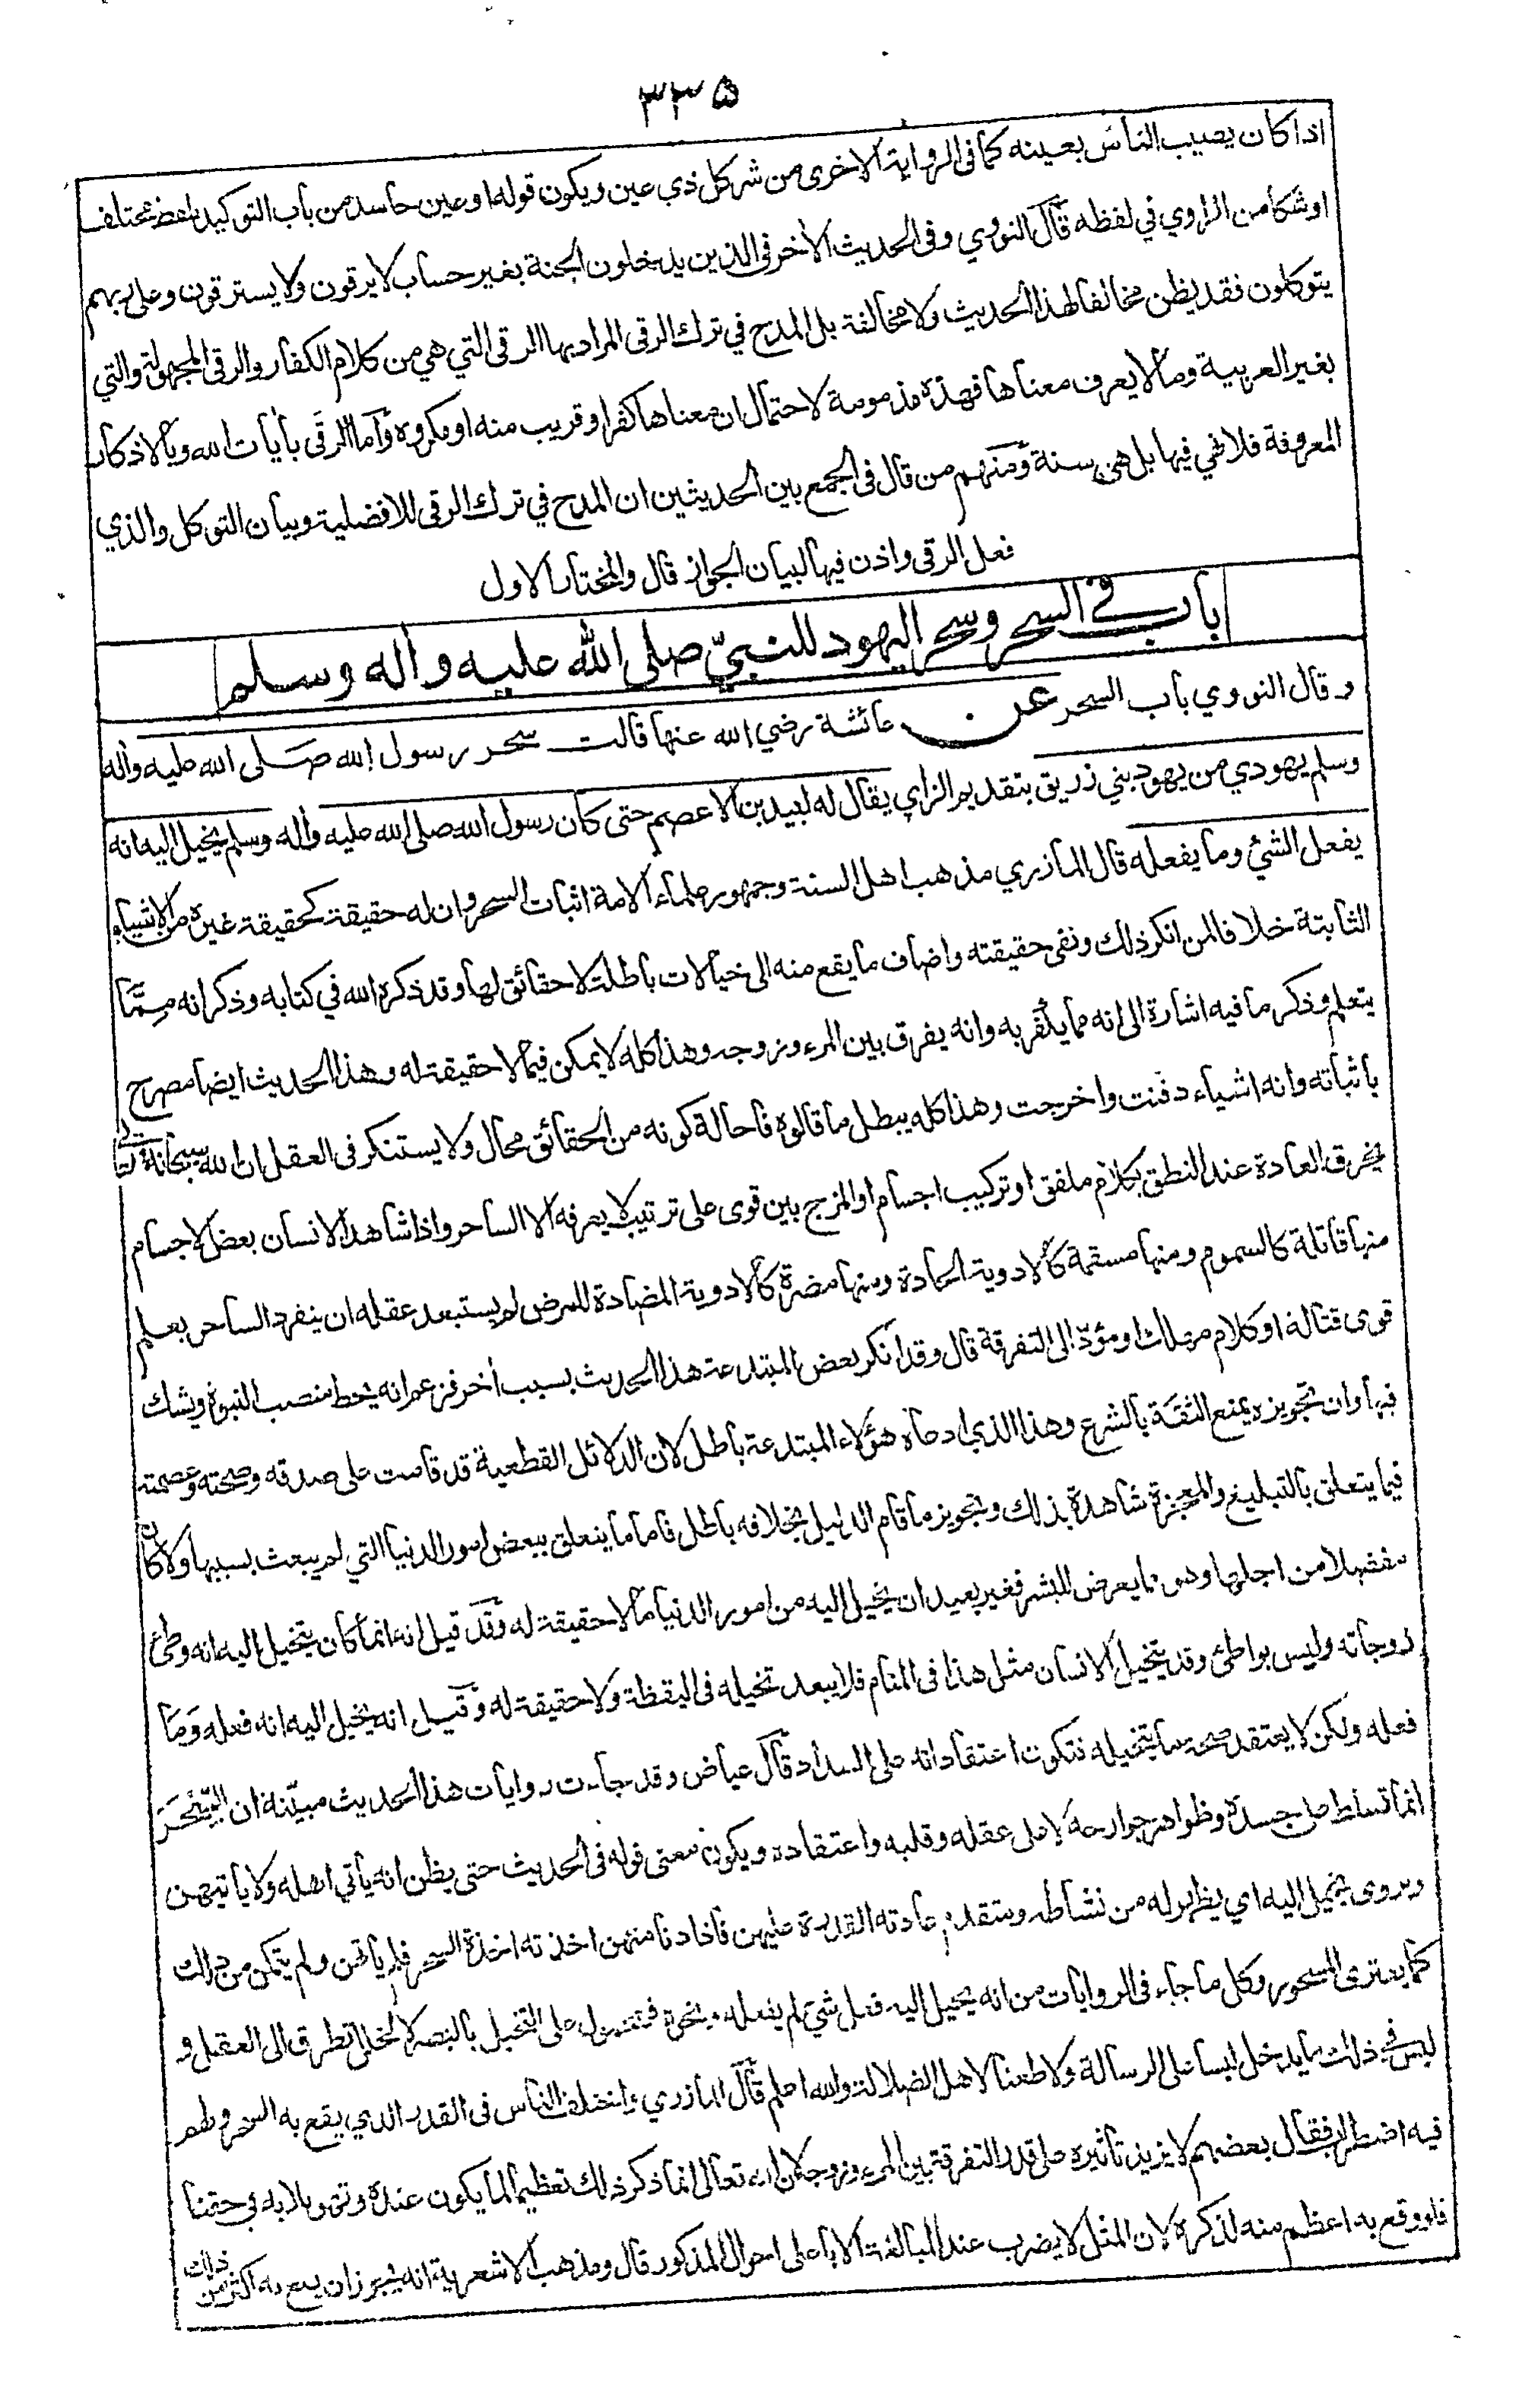 ٣٣٥
اذا كان يصيب الناس بعينه كما فى الرواية الاخرى من شر كل ذي عين ويكون قوله او عين حاسد من باب التوكيد بلفظ مختلف
او شكا من الراوي في لفظه قال النووي وفى الحديث الأخر فى الذين يدخلون الجنة بغير حساب لا يرقون ولا يسترقون وعلى ربهم
يتوكلون فقد يظن مخالفا لهذا الحديث ولا مخالفة بل المدح في ترك الرقى المراد بها الرقى التي هي من كلام الكفار والرقى المجهولة والتي
بغير العربية وما لا يعرف معناها فهذه مذمومة لاحتمال ان معناها كفر او قريب منه او مكروه وأما الرقى بأيات الله وبالاذكار
المعروفة فلا نهي فيها بل هي سنة ومنهم من قال فى الجمع بين الحديثين ان المدح في ترك الرقى للافضلية وبيان التوكل والذي
فعل الرقى واذن فيها لبيان الجواز قال والمختار الاول
باب في السحر وسحر اليهود للنبيّ صلى الله عليه واله وسلم
وقال النووي باب السحر عن عائشة رضي الله عنها قالت سحر رسول الله صلى الله عليه وأله
وسلم يهودي من يهود بني زريق بتقديم الزاي يقال له لبيد بن الاعصم حتى كان رسول الله صلى الله عليه وأله وسلم يخيل اليه انه
يفعل الشئ وما يفعله قال المازري مذهب اهل السنة وجمهور علماء الامة اثبات السحر وان له حقيقة كحقيقة غيره من الاشياء
الثابتة خلافا لمن انكر ذلك ونفى حقيقته واضاف ما يقع منه الى خيالات باطلة لا حقائق لها وقد ذكره الله في كتابه وذكر انه مِمَّا
يتعلم وذكر ما فيه اشارة الى انه مما يكفر به وانه يفرق بين المرء وزوجه وهذا كله لا يمكن فيما لا حقيقة له وهذا الحديث ايضا مصرح
باثباته وانه اشياء دفنت واخرجت وهذا كله يبطل ما قالوه فاحالة كونه من الحقائق محال ولا يستنكر فى العقل ان الله سبحانه وتعالى
يخرق العادة عند النطق بكلام ملفق او تركيب اجسام او المزج بين قوى على ترتيب لا يعرفه الا الساحر واذا شاهد الانسان بعض الاجسام
منها قاتلة كالسموم ومنها مسقمة كالادوية الحادة ومنها مضرة كالادوية المضادة للمرض لم يستبعد عقله ان ينفرد الساحر بعلم
قوى قتالة او كلام مهلك او مؤدّ الى التفرقة قال وقد انكر بعض المبتدعة هذا الحديث بسبب أخر فزعم انه يحط منصب النبوة ويشك
فيها وان تجويزه يمنع الثقة بالشرع وهذا الذي ادعاه هؤلاء المبتدعة باطل لان الدلائل القطعية قد قامت على صدقه وصحته وعصمته
فيما يتعلق بالتبليغ والمعجزة شاهدة بذلك وتجويز ما قام الدليل بخلافه باطل فاما ما يتعلق ببعض امور الدنيا التي لم يبعث بسببها ولا كان
مفضلا من اجلها وهو مما يعرض للبشر فغير بعيد ان يخيل اليه من امور الدنيا ما لا حقيقة له وقد قيل انه انما كان يتخيل اليه انه وطئ
زوجاته وليس بواطئ وقد يتخيل الانسان مثل هذا فى المنام فلا يبعد تخيله فى اليقظة ولا حقيقة له وقيل انه يخيل اليه انه فعله وما
فعله ولكن لا يعتقد صحة ما يتخيله فتكون اعتقاداته على السداد قال عياض وقد جاءت روايات هذا الحديث مبيّنة ان السِّحْرَ
انما تسلط على جسده وظواهر جوارحه لا على عقله وقلبه واعتقاده ويكون معنى قوله فى الحديث حتى يظن انه يأتي اهله ولا يأتيهن
ويروى يخيل اليه اي يظهر له من نشاطه ومتقدم عادته القدرة عليهن فاذا دنا منهن اخذته اخذة السحر فلم يأتهن ولم يتمكن من ذلك
كما يعترى المسحور وكل ما جاء فى الروايات من انه يخيل اليه فعل شئ لم يفعله ونحوه فمحمول على التخيل بالبصر لا لخلل تطرق الى العقل و
ليس في ذلك ما يدخل لبسا على الرسالة ولا طعنا لاهل الضلالة والله اعلم قال المازري واختلف الناس فى القدر الذي يقع به السحر ولهم
فيه اضطراب فقال بعضهم لا يزيد تأثيره على قدر التفرقة بين المرء وزوجه لان الله تعالى انما ذكر ذلك تعظيما لما يكون عنده وتهويلا به في حقنا
فلو وقع به اعظم منه لذكره لان المثل لا يضرب عند المبالغة الا باعلى احوال المذكور قال ومذهب الاشعرية انه يجوز ان يقع به اكثر من ذلك